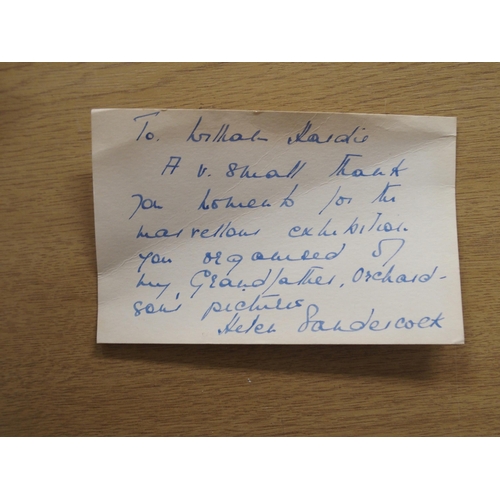 To. William Hardie
A v. small thank
you momento for the
marvellous exhibition
you organised of
my Grandfather, Orchard-
son's pictures
Helen Sandercock